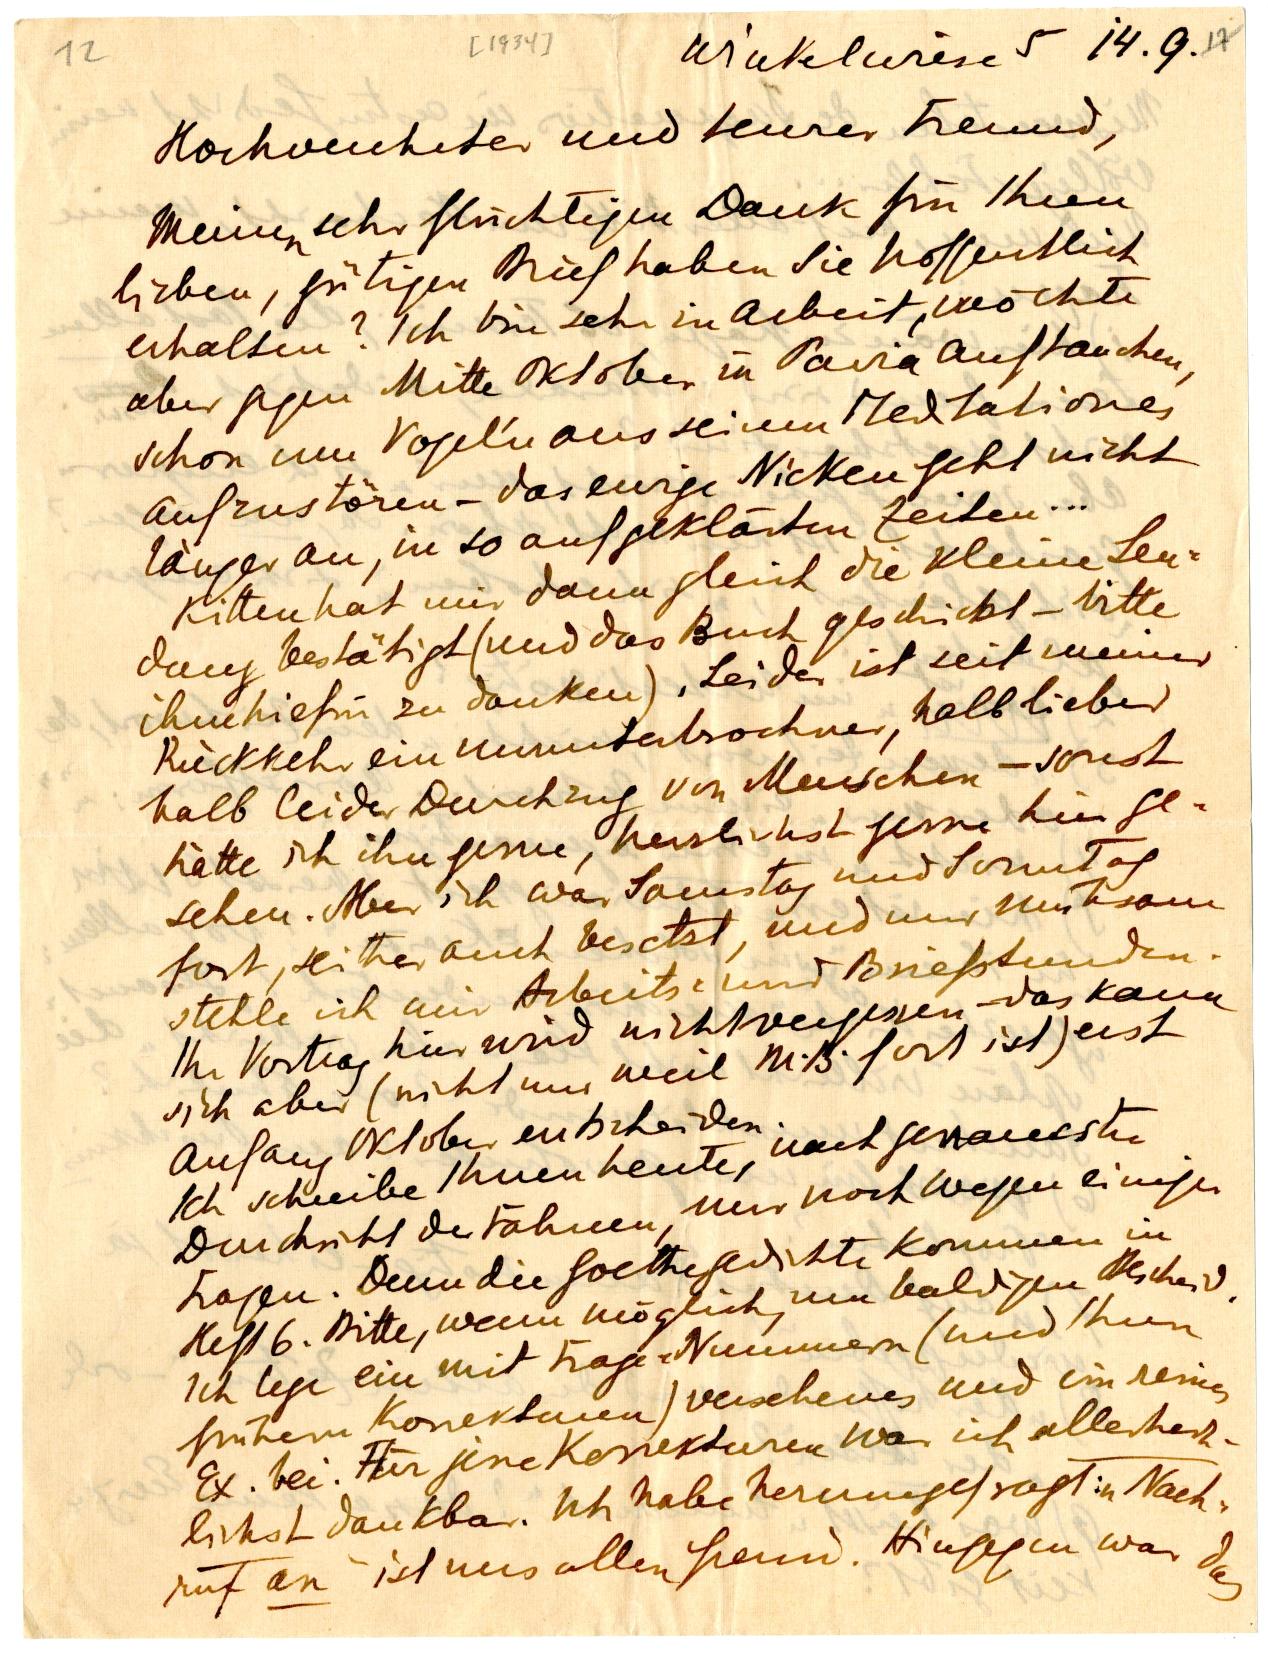 12 [1934] Winkelwiese 5 14. 9.
Hochverehrter und teurer Freund,
Meinen sehr flüchtigen Dank für Ihren
lieben, gütigen Brief haben Sie hoffentlich
erhalten? Ich bin sehr in Arbeit, möchte
aber gegen Mitte Oktober in Pavia auftauchen,
schon um Vogel'n aus seinen Meditationes
aufzustören – das ewige Nicken geht nicht
länger an, in so aufgeklärten Zeiten...
Kitten hat mir dann gleich die kleine Sen-
dung bestätigt (und das Buch geschickt – bitte
ihm hiefür zu danken). Leider ist seit meiner
Rückkehr ein ununterbrochner, halb lieber
halb leider Durchzug von Menschen – sonst
hätte ich ihn gerne, herzlichst gerne hier ge-
sehen. Aber ich war Samstag und Sonntag
fort, seither auch besetzt, und nur mühsam
stehle ich mir Arbeits- und Briefstunden.
Ihr Vortrag hier wird nicht vergessen – das kann
sich aber (nicht nur weil M.B. fort ist) erst
Anfang Oktober entscheiden.
Ich schreibe Ihnen heute, nach genauester
Durchsicht der Fahnen, nur noch wegen einiger
Fragen. Denn die Goethegedichte kommen in
Heft 6. Bitte, wenn möglich, um baldigen Bescheid.
Ich lege ein mit Frage-Nummern (und Ihren
frühern Korrekturen) versehenes und ein reines
Ex. bei. Für jene Korrekturen war ich allerherz-
lichst dankbar. Ich habe herumgefragt: Nach-
ruf an ist uns allen fremd. Hingegen war das